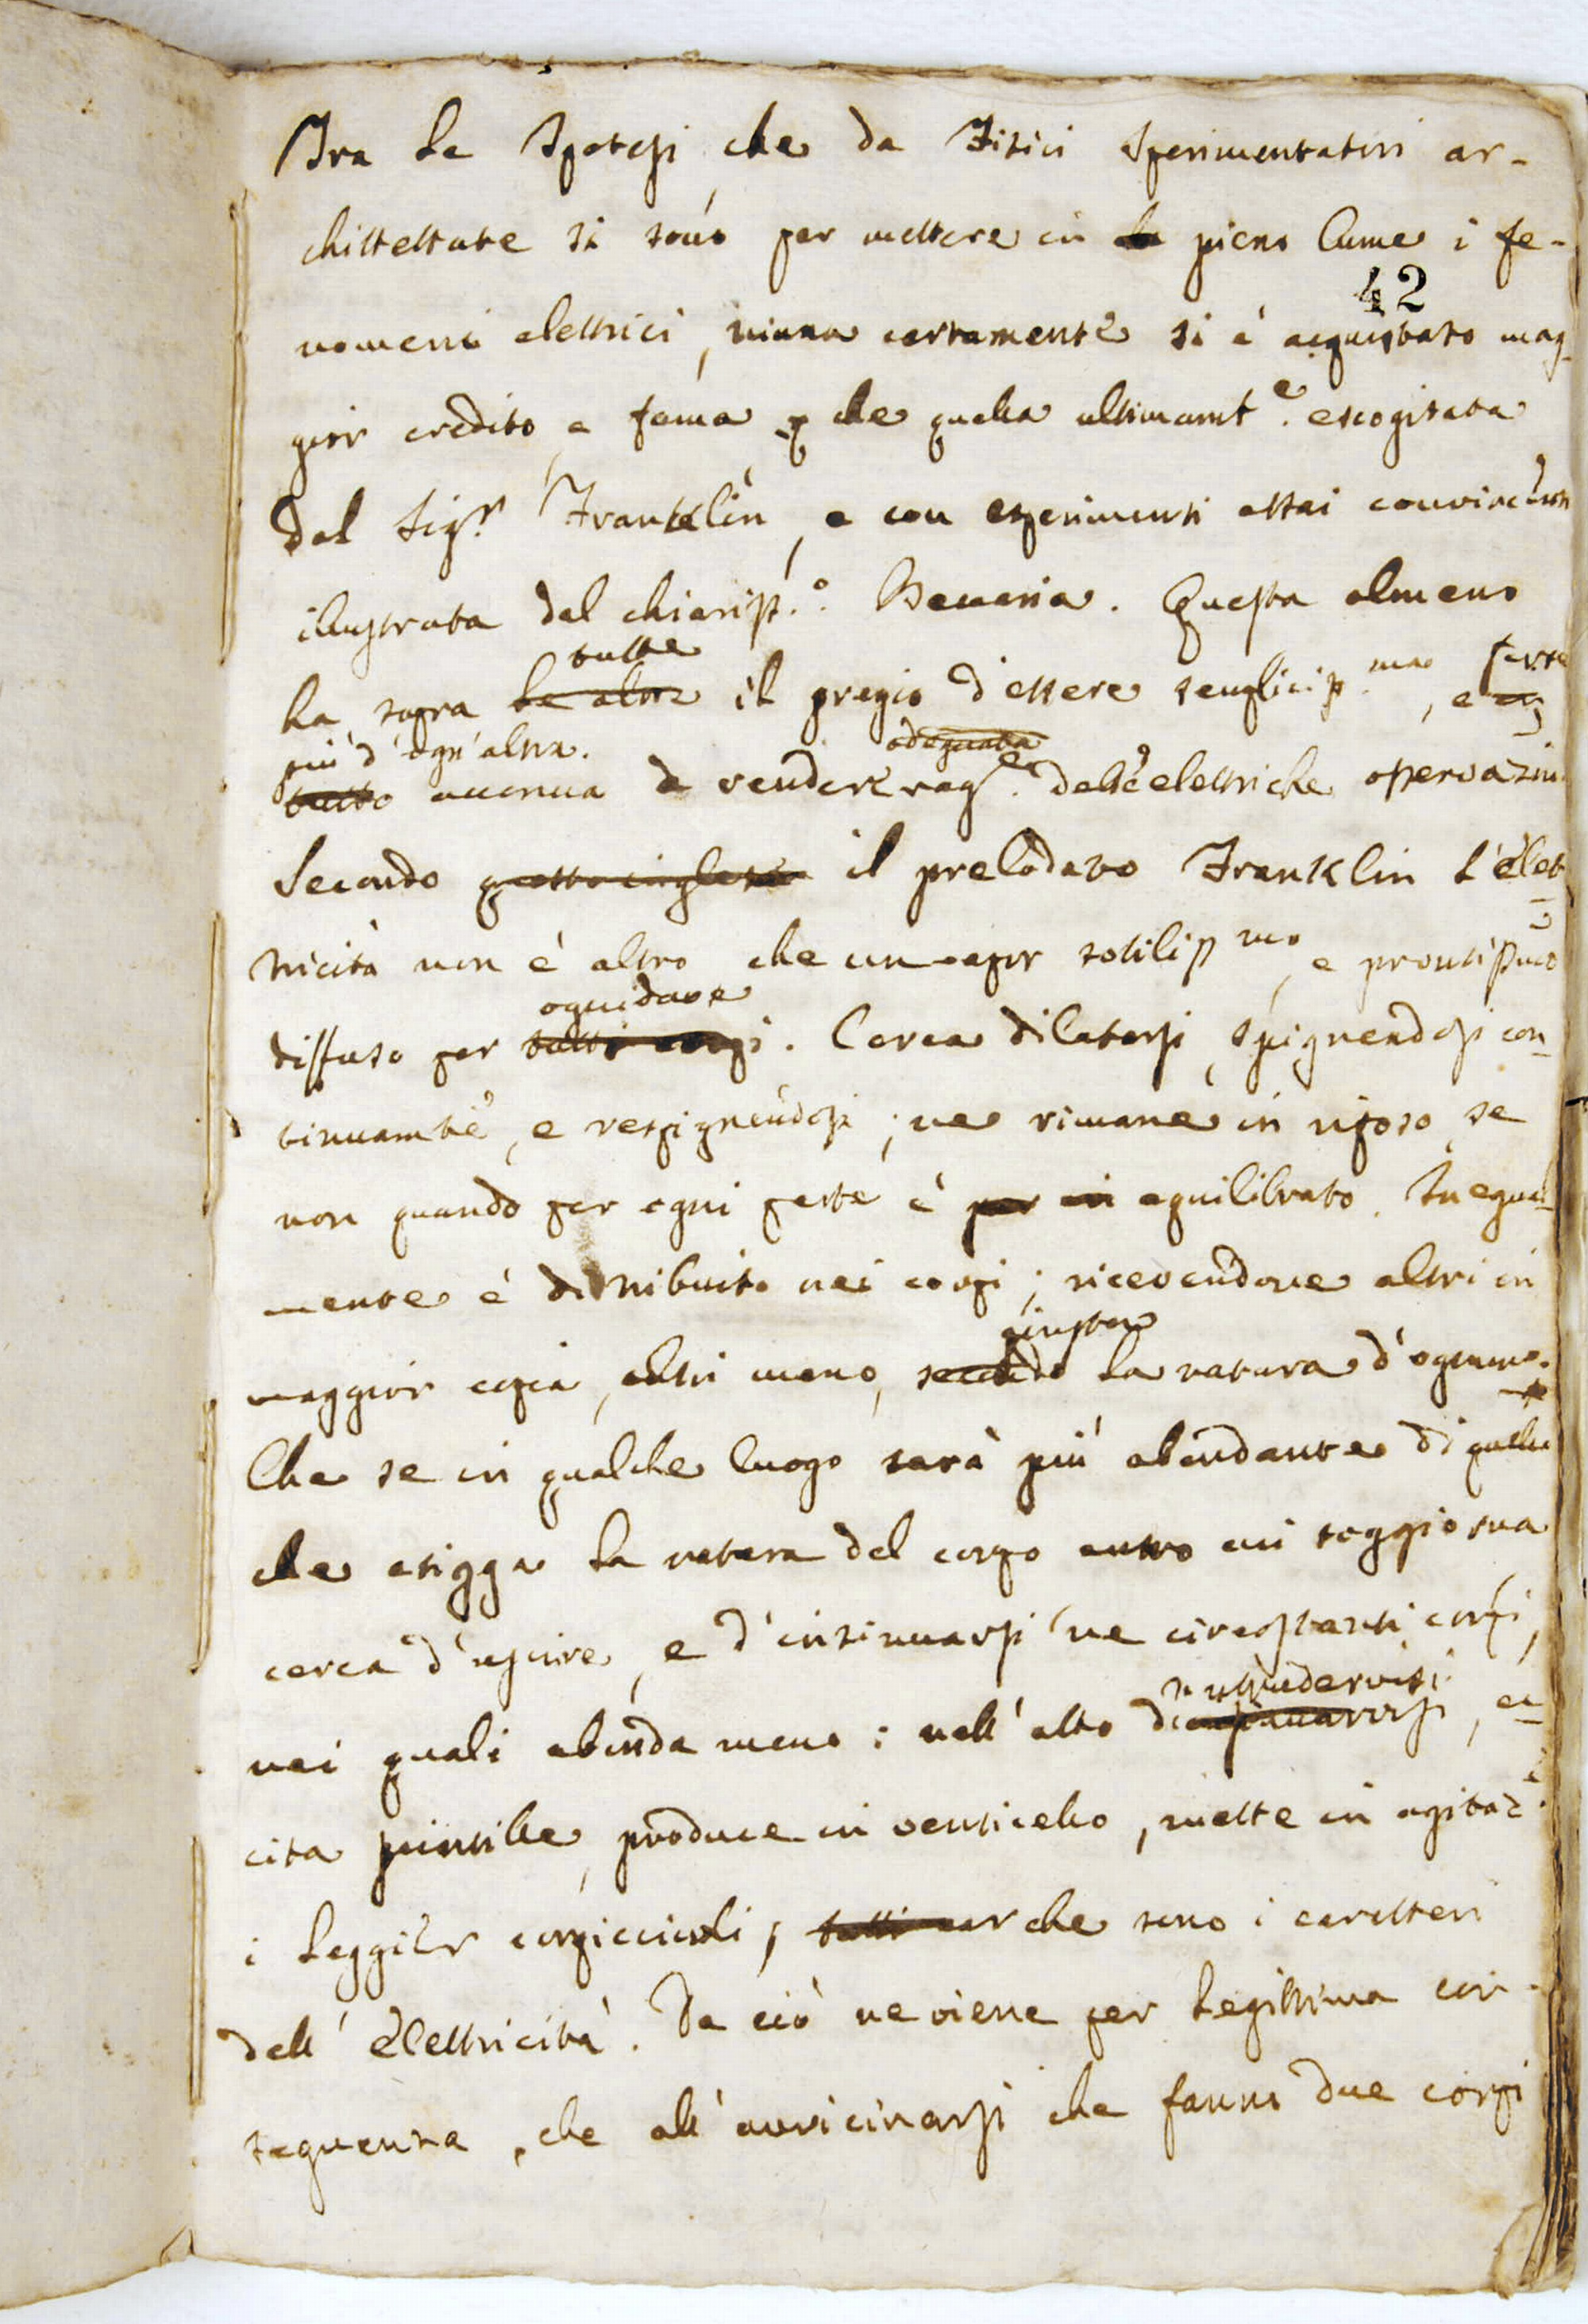 Tra le Ipotesi che da Fisici Sperimentatori ar-
chittettate si sono per mettere in la pieno lume i fe-
42
nomeni elettrici, niuna certamente si è acquistato mag-
gior credito, e fama che quella ultimamt.e escogitata
dal Sig.r Franklin, e con esperimenti assai convincenti
illustrata dal chiariss.o Beccaria. Questa almeno
tutte
ha sopra le altre il pregio d'essere sempliciss.ma, e
forse
più d'ogn'altra.
adequata
tutto accenna a render rag.e delle elettriche osservazioni
Secondo questo inglese il prelodato Franklin l'elet-
tricità non è altro che un vapor sotiliss.mo, e prontissimo
ognidove
diffuso per tutti corpi. Cerca dilatarsi, spignendosi con-
tinuamte, e respignendosi; ne rimane in riposo, se
non quando per ogni parte è per in equilibrato. Inegual-
mente è distribuito nei corpi; ricevendone altri in
giusta
maggior copia, altri meno, secondo la natura d'ognuno.
Che se in qualche luogo sarà più abondante di quello
che esigga la natura del corpo entro cui soggiorna
cerca d'uscire, e d'insinuarsi ne circostanti corpi,
intrudervisi
nei quali abonda meno: nell'atto d'insinuarvisi, ec-
cita scintille, produce un venticello, mette in agitaz.e
i leggier corpicciuoli, tutti car che sono i caratteri
dell'elettricità. Da ciò ne viene per legittima con-
seguenza, che all'avvicinarsi che fanno due corpi